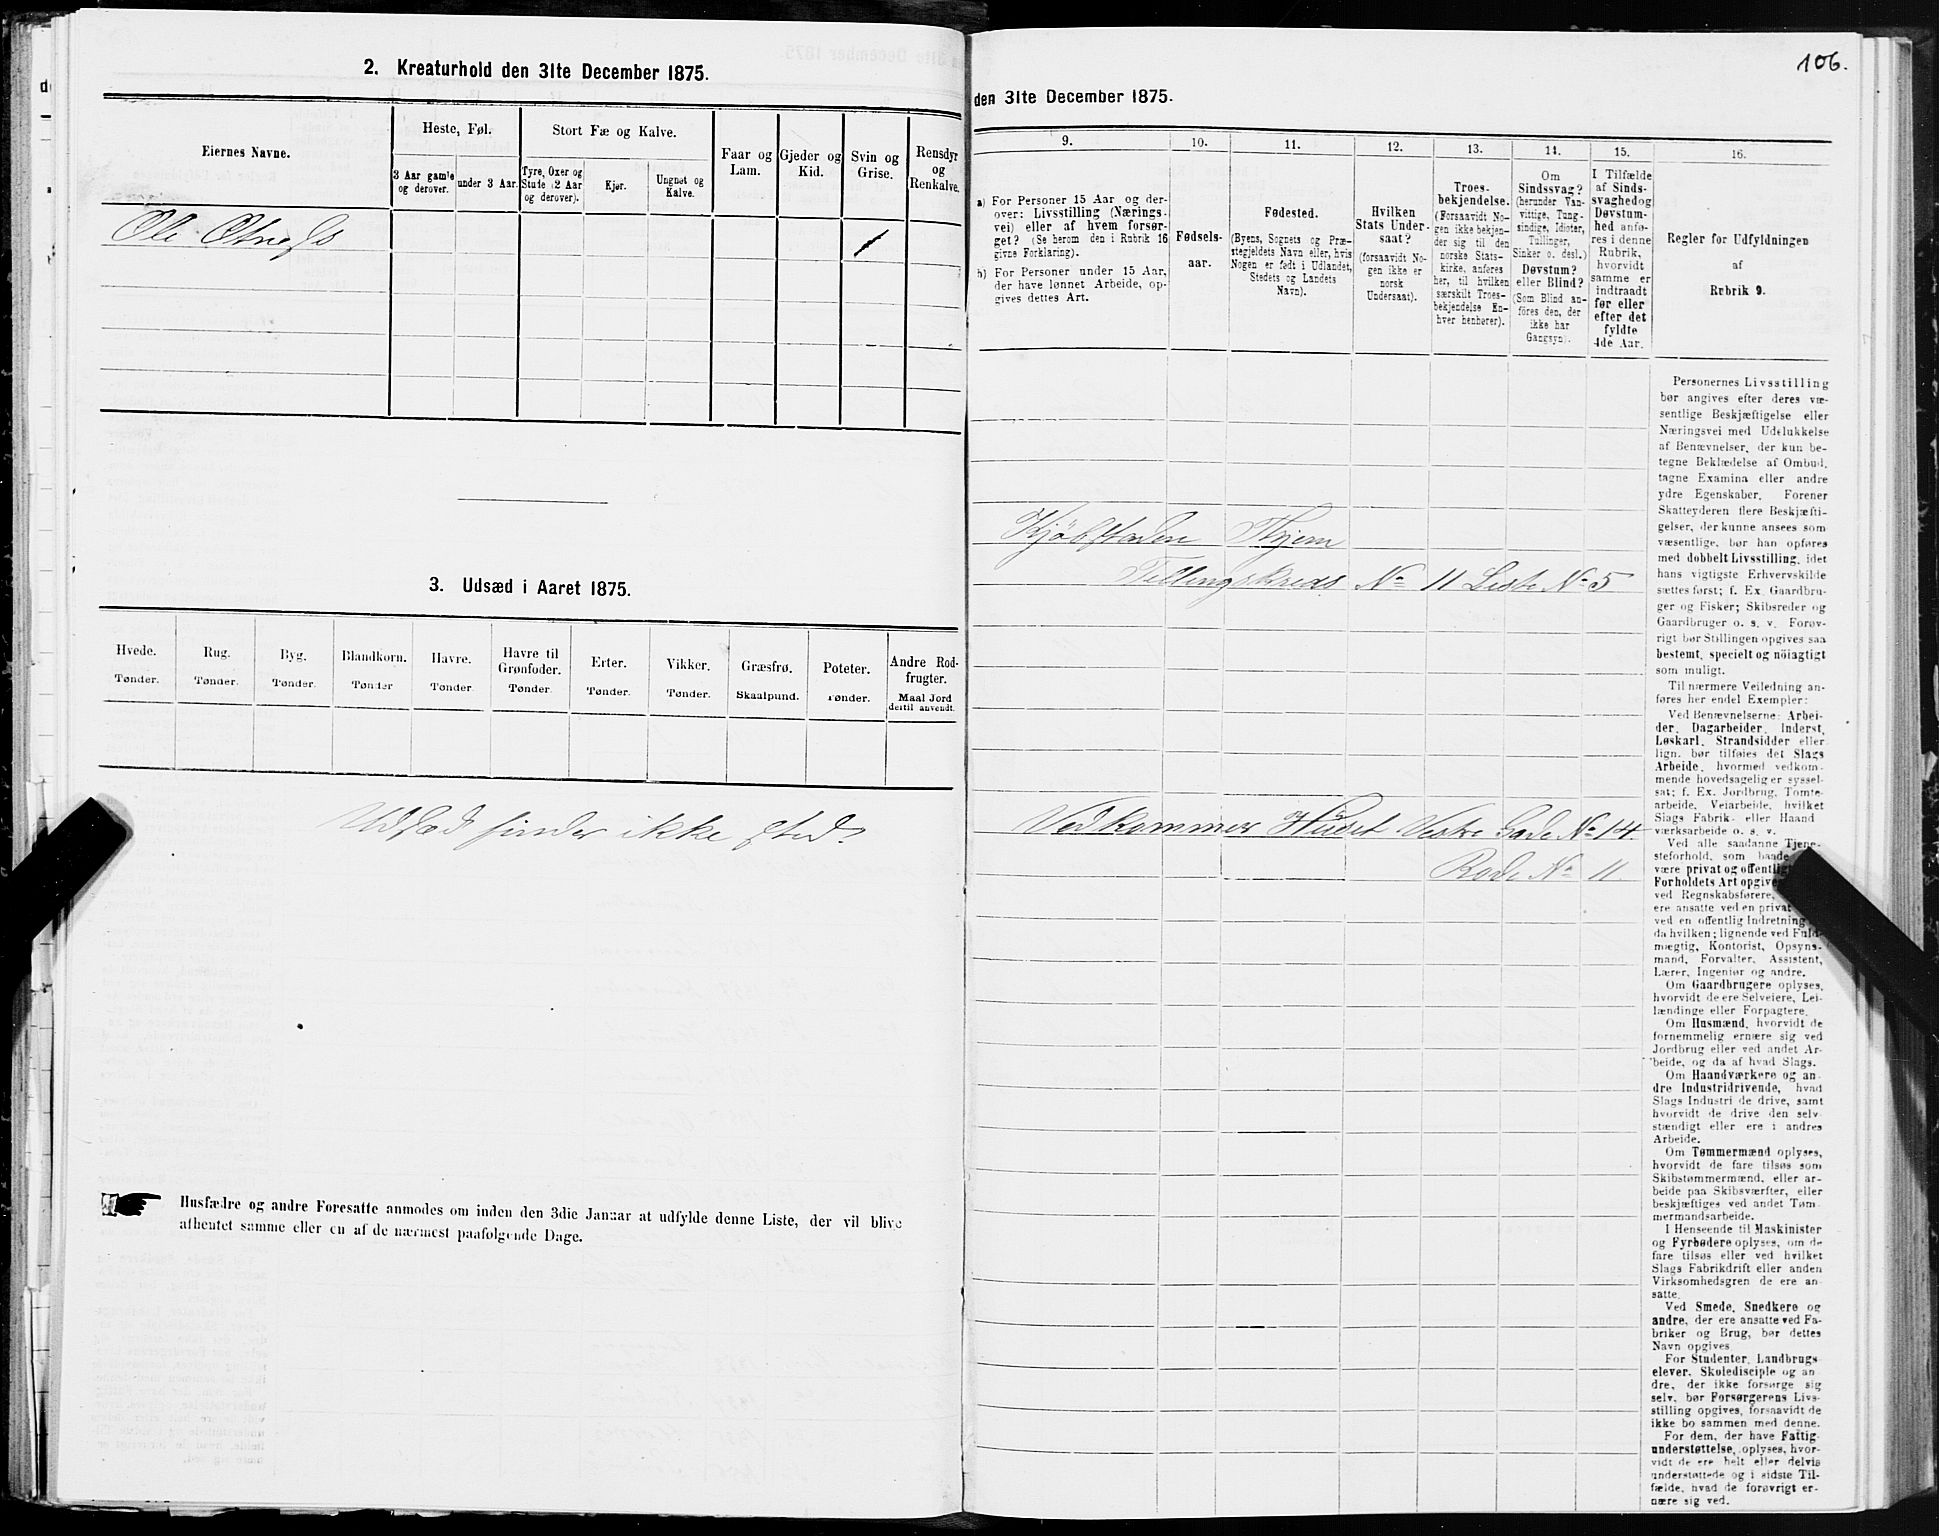 2. Kreaturhold den 31te December 1875.
Eiernes Navne.
Heste, Føl.
3 Aar gamle og derover.
under 3 Aar.
Stort Fæ og Kalve.
Tyre, Oxer og Stude (2 Aar og derover).
Kjør.
Ungnøt og Kalve.
Faar og Lam.
Gjeder og Kid.
Svin og Grise.
Rensdyr og Renkalve.
Ole
1
3. Udsæd i Aaret 1875.
Hvede. Tønder.
Rug. Tønder.
Byg. Tønder.
Blandkorn. Tønder
Havre. Tønder.
Havre til Grønfoder. Tønder.
Erter. Tønder.
Vikker. Tønder.
Græsfrø. Skaalpund.
Poteter. Tønder.
Andre Rodfrugter. Maal Jord dertil anvendt.
Udsæd finder ikke sted
Husfædre og andre Foresatte anmodes om inden den 3die Januar at udfylde denne Liste, der vil blive
afhentet samme eller en af de nærmest paafølgende Dage.
106.
den 31te December 1875.
9.
10.
11.
12.
13.
14.
15.
16.
a) For Personer 15 Aar og derover: Livsstilling (Næringsvei) eller af hvem forsørget? (Se herom den i Rubrik 16 givne Forklaring).
b) For Personer under 15 Aar, der have lønnet Arbeide, opgives dettes Art.
Fødselsaar.
Fødested.
(Byens, Sognets og Præstegjeldets Navn eller, hvis Nogen er født i Udlandet, Stedets og Landets Navn).
Hvilken Stats Undersaat?
(forsaavidt Nogen ikke er norsk Undersaat).
Troesbekjendelse.
(Forsaavidt Nogen ikke bekjender sig til den norske Statskirke, anføres her, til hvilken særskilt Troesbekjendelse Enhver henhører).
Om Sindssvag? (herunder Vanvittige, Tungsindige, Idioter, Tullinger, Sinker o. desl.) Døvstum? eller Blind? (Som Blind anføres den, der ikke har Gangsyn).
I Tilfælde af Sindssvaghed og Døvstumhed anføres i denne Rubrik, hvorvidt samme er indtraadt før eller efter det fyldte 4de Aar.
Regler for Udfyldningen
af
Rubrik 9.
Kjöbstaden Thjem
Tellingskreds No 11 Liste No 5
Vedkommer Huset Vestre Gade No 14.
Rode No 11.
Personernes Livsstilling
bør angives efter deres væ-
sentlige Beskjæftigelse eller
Næringsvei med Udelukkelse
af Benævnelser, der kun be-
tegne Beklædelse af Ombud,
tagne Examina eller andre
ydre Egenskaber. Forener
Skatteyderen flere Beskjæfti-
gelser, der kunne ansees som
væsentlige, bør han opføres
med dobbelt Livsstilling, idet
hans vigtigste Erhvervskilde
sættes først; f. Ex. Gaardbru-
ger og Fisker; Skibsreder og
Gaardbruger o. s. v. Forøv-
rigt bør Stillingen opgives saa
bestemt, specielt og nöiagtigt
som muligt.
Til nærmere Veiledning an-
føres her endel Exempler:
Ved Benævnelserne: Arbei-
der, Dagarbeider, Inderst,
Løskarl, Strandsidder eller
lign. bør tilføies det Slags
Arbeide, hvormed vedkom-
mende hovedsagelig er syssel-
sat; f. Ex. Jordbrug, Tomte-
arbeide, Veiarbeide, hvilket
Slags Fabrik- eller Haand
værksarbeide o. s. v.
Ved alle saadanne Tjene-
steforhold, som baade
være privat og offentligt
Forholdets Art opgives
ved Regnskabsførere,
ere ansatte ved en privat
ved en offentlig Indretning
da hvilken; lignende ved Fuld-
mægtig, Kontorist, Opsyns-
mand, Forvalter, Assistent,
Lærer, Ingeniør og andre.
Om Gaardbrugere oplyses,
hvorvidt de ere Selveiere, Lei-
lændinge eller Forpagtere.
Om Husmænd, hvorvidt de
fornemmelig ernære sig ved
Jordbrug eller ved andet Ar-
beide, og da af hvad Slags.
Om Haandværkere og an-
dre Industridrivende, hvad
Slags Industri de drive, samt
hvorvidt de drive den selv-
stændigt eller ere i andres
Arbeide.
Om Tømmermænd oplyses,
hvorvidt de fare tilsøs som
Skibstømmermænd, eller ar-
beide paa Skibsværfter, eller
beskjæftiges ved andet Tøm-
mermandsarbeide.
I Henseende til Maskinister
og Fyrbødere oplyses, om de
fare tilsøs eller ved hvilket
Slags Fabrikdrift eller anden
Virksomhedsgren de ere an-
satte.
Ved Smede, Snedkere og
andre, der ere ansatte ved Fa-
briker og Brug, bør dettes
Navn opgives
For Studenter, Landbrugs
elever, Skoledisciple og an
dre, der ikke forsørge sig
selv, bør Forsørgerens Livs-
stilling opgives, forsaavidt de
ikke bo sammen med denne.
For dem, der have Fattig-
understøttelse, oplyses, hvor-
vidt de ere helt eller delvis
understøttede og i sidste Til-
fælde, hvad de forøvrigt er-
nære sig ved.